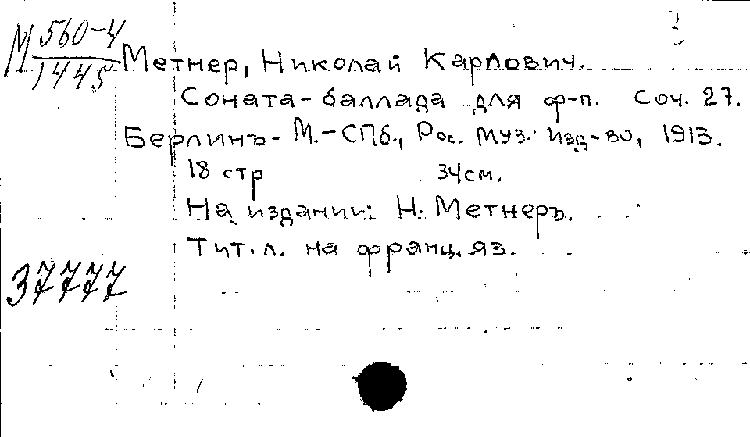 М 560-4
1445
Метнер, Николай Карлович.
Соната-баллада для ф-п. Соч. 27.
Берлинъ- М.-СПб., Рос. муз. изд-во, 1913.
18 стр 34см.
На издании: Н. Метнеръ.
Тит. л. на франц. яз.
37777